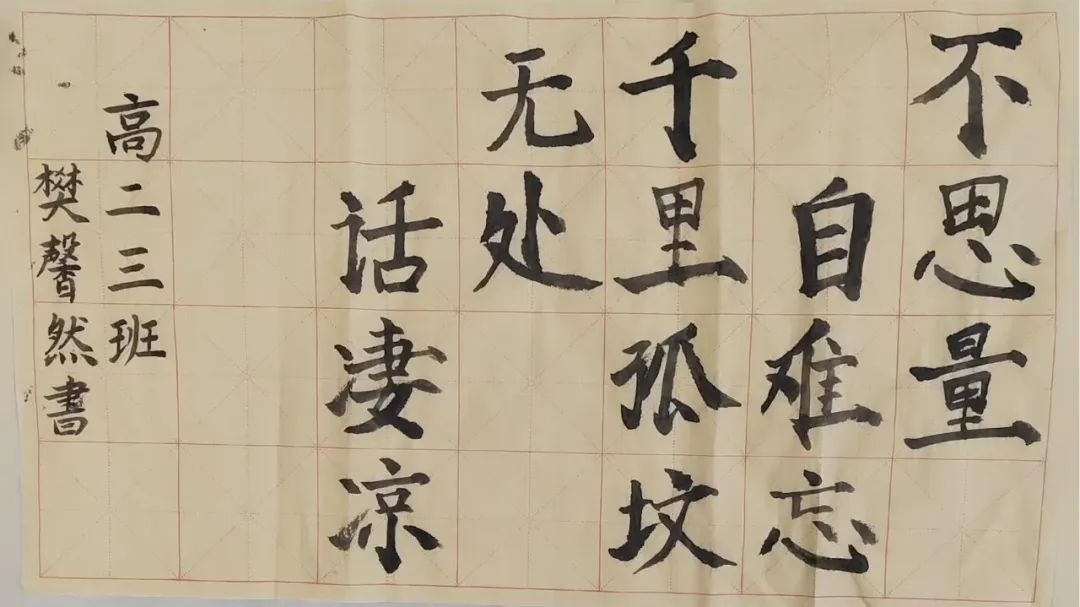 不思量
自难忘
千里孤坟
无处
话凄凉
高二三班
樊馨然书